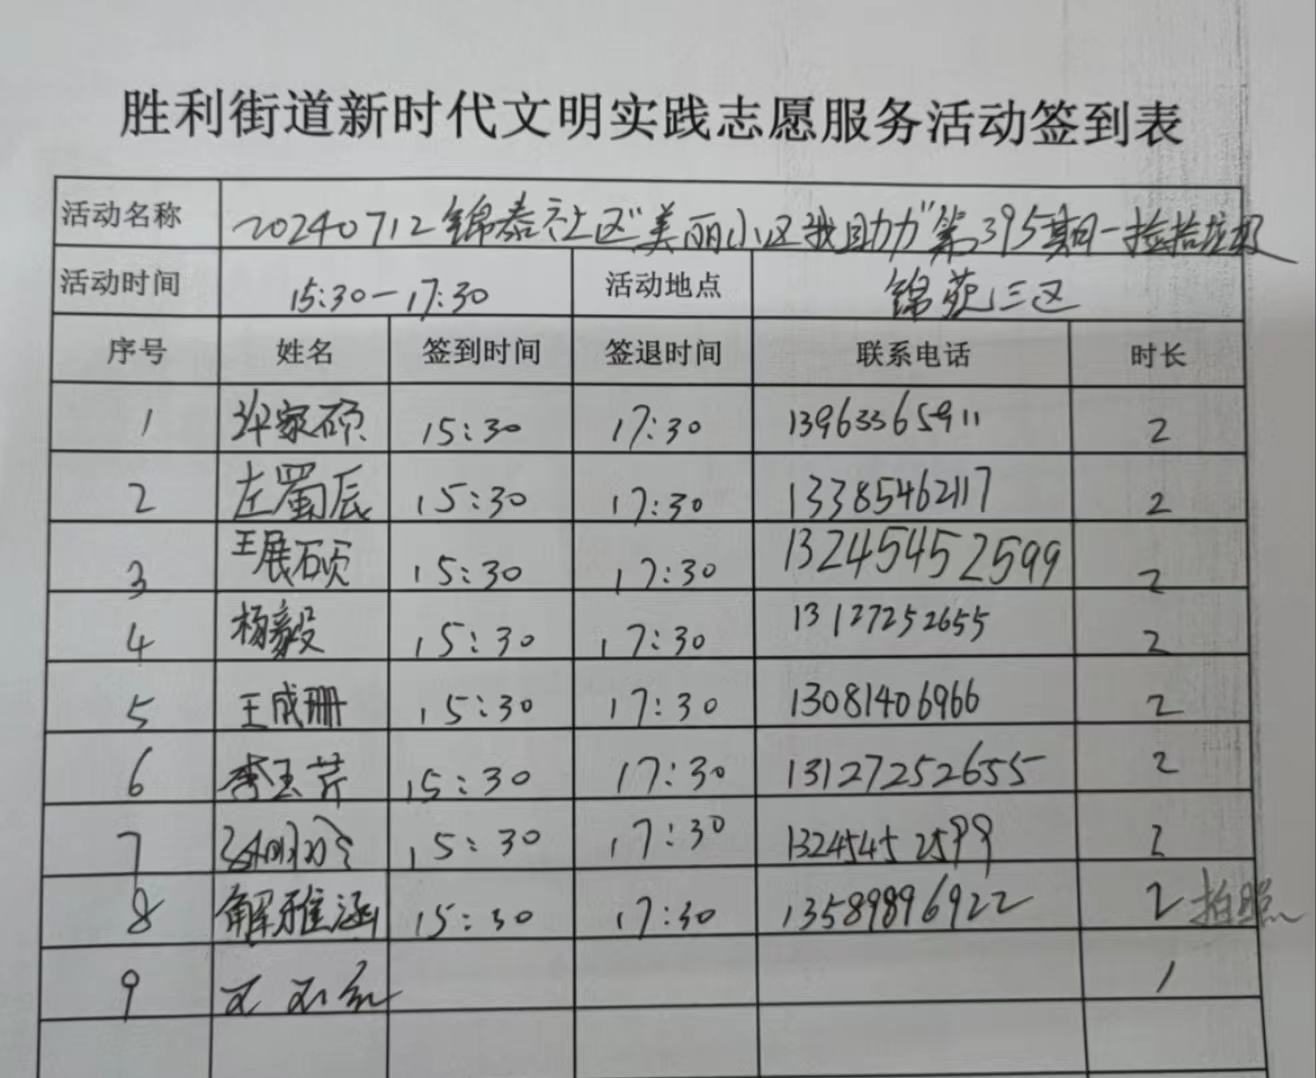 胜利街道新时代文明实践志愿服务活动签到表
活动名称 20240712锦泰社区"美丽小区我助力"第395期-捡拾垃圾
活动时间 15:30-17:30 活动地点 锦苑三区
序号 姓名 签到时间 签退时间 联系电话 时长
1 家硕 15:30 17:30 13963365911 2
2 左蜀辰 15:30 17:30 13385462117 2
3 王展硕 15:30 17:30 13245452599 2
4 杨毅 15:30 17:30 13127252655 2
5 王成珊 15:30 17:30 13081406966 2
6 李玉芹 15:30 17:30 13127252655 2
7 15:30 17:30 13245452599 2
8 解雅涵 15:30 17:30 13589896922 2 拍照
9 1